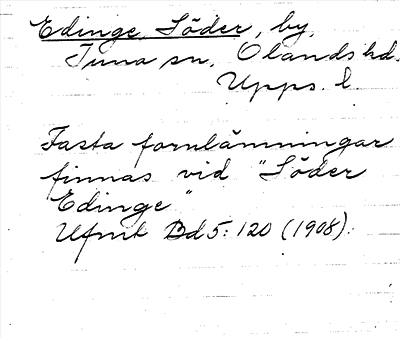 Edinge, Söder, by,
Tuna sn, Olands hd.
Upps. l.
Fasta fornlämningar
finnas vid "Söder
Edinge"
Ufmt Bd 5: 120 (1908).